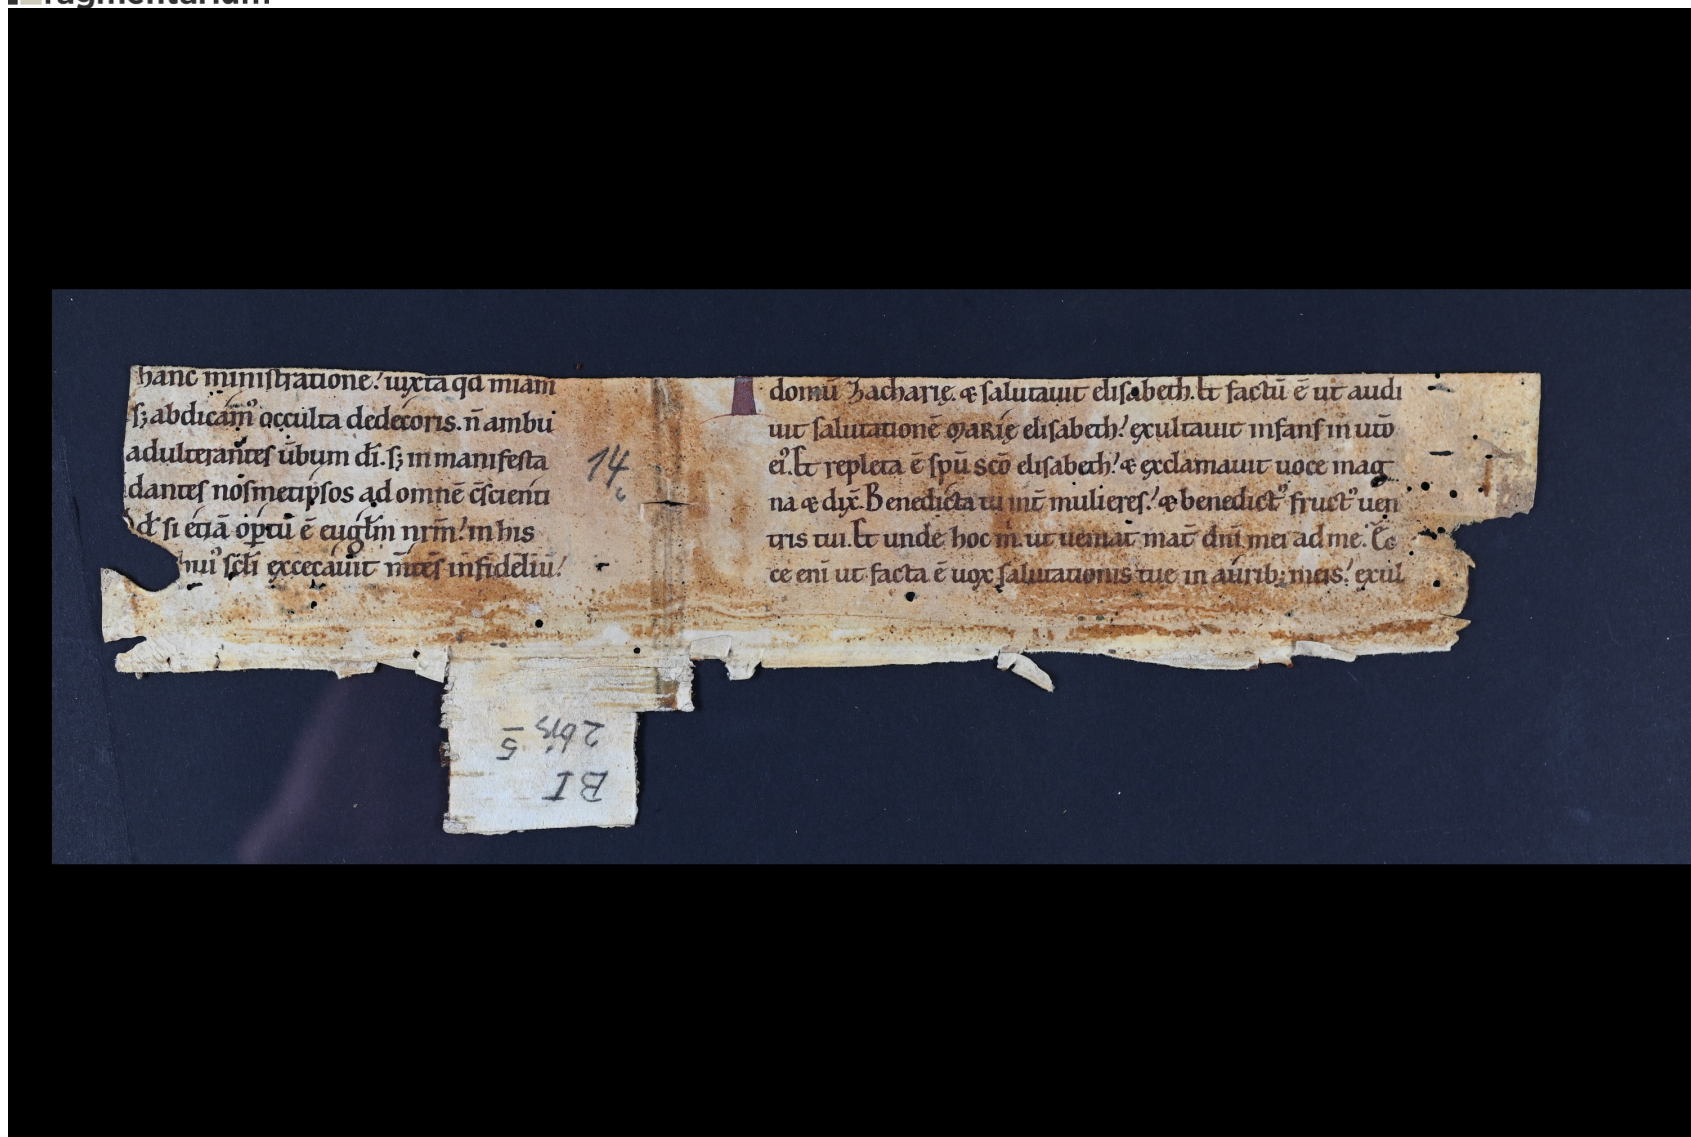 hanc ministratione: iuxta qd miam
s; abdicam⁹ occulta dedecoris. n̄ ambu
adulterantes ùbum dī. s; in manifesta
dantes nosmetipsos ad omnē c̄scienti
qd' si etiā op̄tū ē eugłm nr̄m: in his
hui⁹ sc̄li excecauit m̄tes infideliū:
14
domū Zacharię. & salutauit elisabeth. Et factū ē ut audi
uit salutationē MARIĘ elisabeth: exultauit infans in utō
ei⁹. Et repleta ē sp̄u scō elisabeth: & exclamauit uoce mag
na & dix̄. Benedicta tu int̄ mulieres: & benedict⁹ fruct⁹ uen
tris tui. Et unde hoc m̄. ut ueniat mat̄ dn̄i mei ad me. Ec
ce eni ut facta ē uox salutationis tuę in aurib; meis: exul
BI
2 bis 5